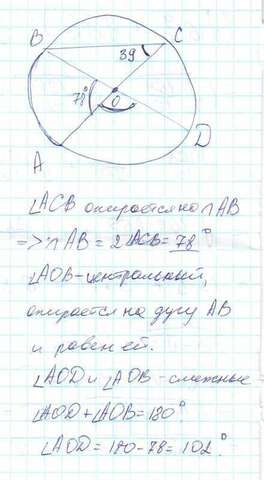 B
C
39
78°
O
D
A
∠ACB опирается на ∩AB
=> ∩AB = 2∠ACB = 78°
∠AOB-центральный,
опирается на дугу AB
и равен ей.
∠AOD и ∠AOB - смежные
∠AOD + ∠AOB = 180°
∠AOD = 180 - 78 = 102°